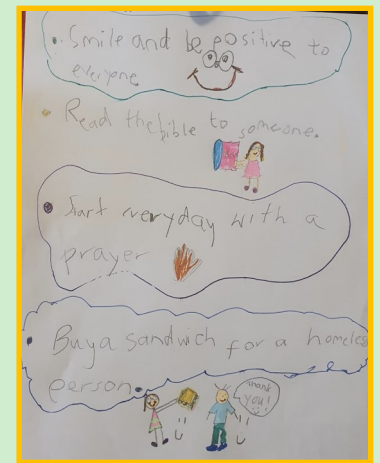 • Smile and be positive to
everyone
• Read the bible to someone.
• Start everyday with a
prayer
• Buy a sandwich for a homeless
person.
Thank
you!